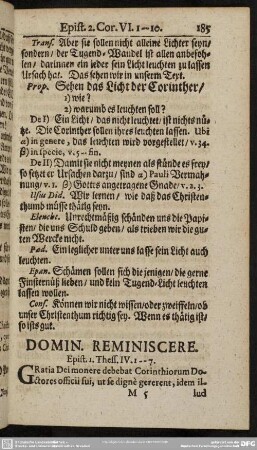 Epist. 2. Cor. VI. 1--10. 185
Transf. Aber sie sollen nicht alleine Lichter seyn/
sondern/ der Tugend-Wandel ist allen anbefoh-
len/ darinnen ein jeder sein Licht leuchten zu lassen
Ursach hat. Das sehen wir in unserm Text.
Prop. Sehen das Licht der Corinther/
1) wie?
2) warumb es leuchten soll?
De I) Ein Licht/ das nicht leuchtet/ ist nichts nü-
tze. Die Corinther sollen ihres leuchten lassen. Ubi
α) in genere, das leuchten wird vorgestellet/ v. 34.
β) in specie, v. 5--fin.
De II) Damit sie nicht meynen als stünde es frey/
so setzet er Ursachen darzu/ sind α) Pauli Vermah-
nung/ v. 1. β) Gottes angetragene Gnade/ v. 2. 3.
Usus Did. Wir lernen/ wie daß das Christen-
thumb müsse thätig seyn.
Elencht. Unrechtmäßig schänden uns die Papi-
sten/ die uns Schuld geben/ als trieben wir die gu-
ten Wercke nicht.
Pæd. Ein jeglicher unter uns lasse sein Licht auch
leuchten.
Epan. Schämen sollen sich die jenigen/ die gerne
Finsternüß lieben/ und kein Tugend-Licht leuchten
lassen wollen.
Conf. Können wir nicht wissen/ oder zweiffeln/ ob
unser Christenthum richtig sey. Wenn es thätig ist/
so ists gut.
DOMIN. REMINISCERE.
Epist. 1. Thess. IV. 1--7.
GRatia Dei monere debebat Corinthiorum Do-
ctores officii sui, ut se dignè gererent, idem il-
M 5 lud